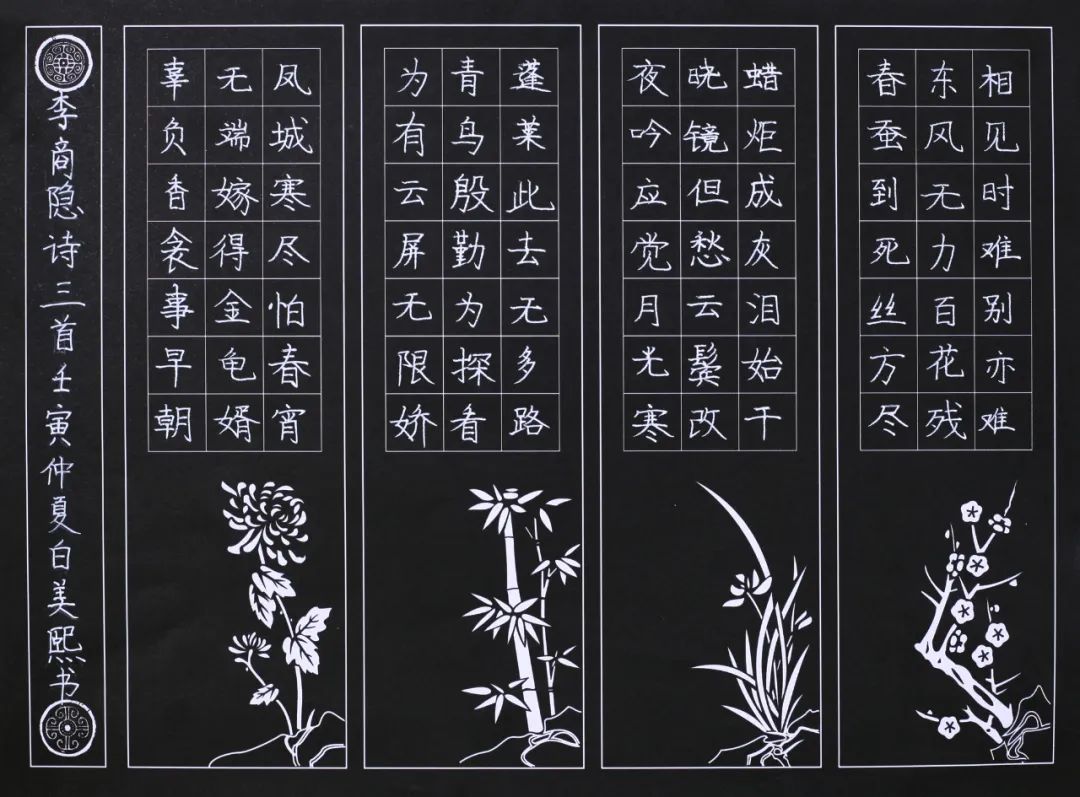 相见时难别亦难
东风无力百花残
春蚕到死丝方尽
蜡炬成灰泪始干
晓镜但愁云鬓改
夜吟应觉月光寒
蓬莱此去无多路
青鸟殷勤为探看
为有云屏无限娇
凤城寒尽怕春宵
无端嫁得金龟婿
辜负香衾事早朝
李商隐诗三首壬寅仲夏白美熙书